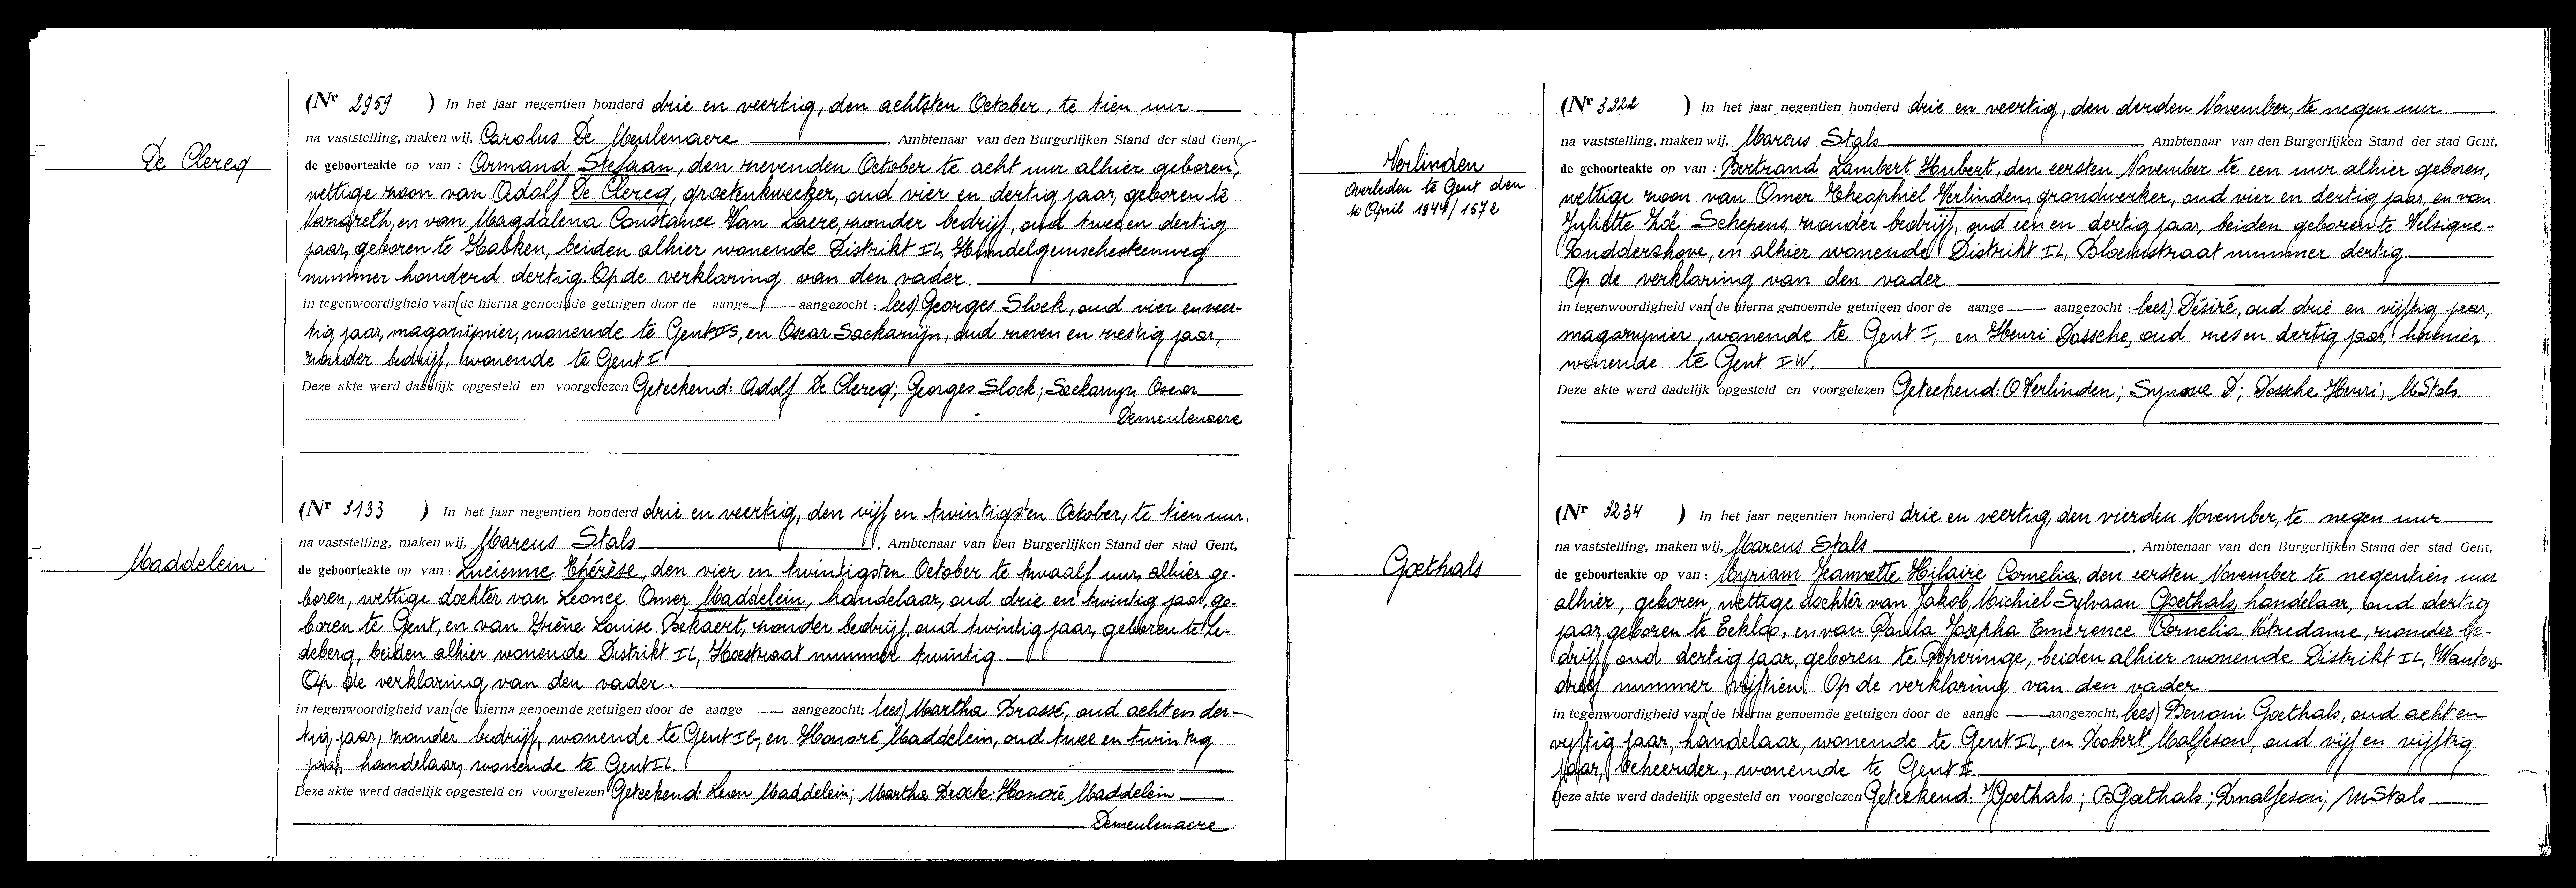 De Clercq
(Nr 2959 ) In het jaar negentien honderd drie en veertig, den achtsten October, te tien uur.
na vaststelling, maken wij, Carolus De Meulenaere, Ambtenaar van den Burgerlijken Stand der stad Gent,
de geboorteakte op van : Armand Stefaan, den zevenden October te acht uur alhier geboren,
wettige zoon van Adolf De Clercq, groetenkweeker, oud vier en dertig jaar, geboren te
Nazareth, en van Magdalena Constance Van Laere, zonder bedrijf, oud twee en dertig
jaar, geboren te Kalken, beiden alhier wonende Distrikt IL,
nummer honderd dertig. Op de verklaring van den vader.
in tegenwoordigheid van (de hierna genoemde getuigen door de aange — aangezocht : lees) Georges Slock, oud vier en veer-
tig jaar, magazijnier, wonende te Gent IS, en Oscar Sackazijn, oud zeven en zestig jaar,
zonder bedrijf, wonende te Gent I.
Deze akte werd dadelijk opgesteld en voorgelezen Geteekend: Adolf De Clercq; Georges Slock; Oscar
Demeulenaere
Maddelein
(Nr 3133 ) In het jaar negentien honderd drie en veertig, den vijf en twintigsten October, te tien uur.
na vaststelling, maken wij, Marcus Stals, Ambtenaar van den Burgerlijken Stand der stad Gent,
de geboorteakte op van : Lucienne Thérèse, den vier en twintigsten October te twaalf uur, alhier ge-
boren, wettige dochter van Leonce Omer Maddelein, handelaar, oud drie en twintig jaar, ge-
boren te Gent, en van Irène Louise Bekaert, zonder bedrijf, oud twintig jaar, geboren te Le-
deberg, beiden alhier wonende Distrikt IL, Hoestraat nummer twintig.
Op de verklaring van den vader.
in tegenwoordigheid van (de hierna genoemde getuigen door de aange — aangezocht: lees) Martha Brassé, oud acht en der-
tig jaar, zonder bedrijf, wonende te Gent, en Honoré Maddelein, oud twee en twintig
jaar, handelaar, wonende te Gent IL.
Deze akte werd dadelijk opgesteld en voorgelezen Geteekend: Maddelein; Martha; Honoré Maddelein
Demeulenaere
Verlinden
Overleden te Gent den
10 April 1944/1572
(Nr 3222 ) In het jaar negentien honderd drie en veertig, den derden November, te negen uur
na vaststelling, maken wij, Marcus Stals, Ambtenaar van den Burgerlijken Stand der stad Gent,
de geboorteakte op van : Bertrand Lambert Houbert, den eersten November te een uur alhier geboren,
wettige zoon van Omer Theophiel Verlinden, grondwerker, oud vier en dertig jaar, en van
Juliette Zoë Schepens, zonder bedrijf, oud een en dertig jaar, beiden geboren te Velsique-
Ruddershove, en alhier wonende Distrikt IL, Bloemstraat nummer dertig.
Op de verklaring van den vader
in tegenwoordigheid van (de hierna genoemde getuigen door de aange — aangezocht : lees) Désiré, oud drie en vijftig jaar,
magazynier, wonende te Gent I, en Henri Dossche, oud zes en dertig jaar,
wonende te Gent IW.
Deze akte werd dadelijk opgesteld en voorgelezen Geteekend: O Verlinden; Synave D; Dossche Henri; MStals.
Goethals
(Nr 3234 ) In het jaar negentien honderd drie en veertig, den vierden November, te negen uur
na vaststelling, maken wij, Marcus Stals, Ambtenaar van den Burgerlijken Stand der stad Gent,
de geboorteakte op van : Myriam Jeannette Hilaire Cornelia, den eersten November te negentien uur
alhier, geboren, wettige dochter van Jakob Michiel Sylvaan Goethals, handelaar, oud dertig
jaar, geboren te Eekloo, en van Paula Josepha Emerence Cornelia Notredame, zonder be-
drijf, oud dertig jaar, geboren te Poperinge, beiden alhier wonende Distrikt IL, Wauters-
dreef nummer vijftien. Op de verklaring van den vader.
in tegenwoordigheid van (de hierna genoemde getuigen door de aange — aangezocht, lees) Benoni Goethals, oud acht en
vijftig jaar, handelaar, wonende te Gent IL, en Robert Malfeson, oud vijf en vijftig
jaar, beheerder, wonende te Gent
Deze akte werd dadelijk opgesteld en voorgelezen Geteekend: JGoethals; BGoethals; RMalfeson; MStals